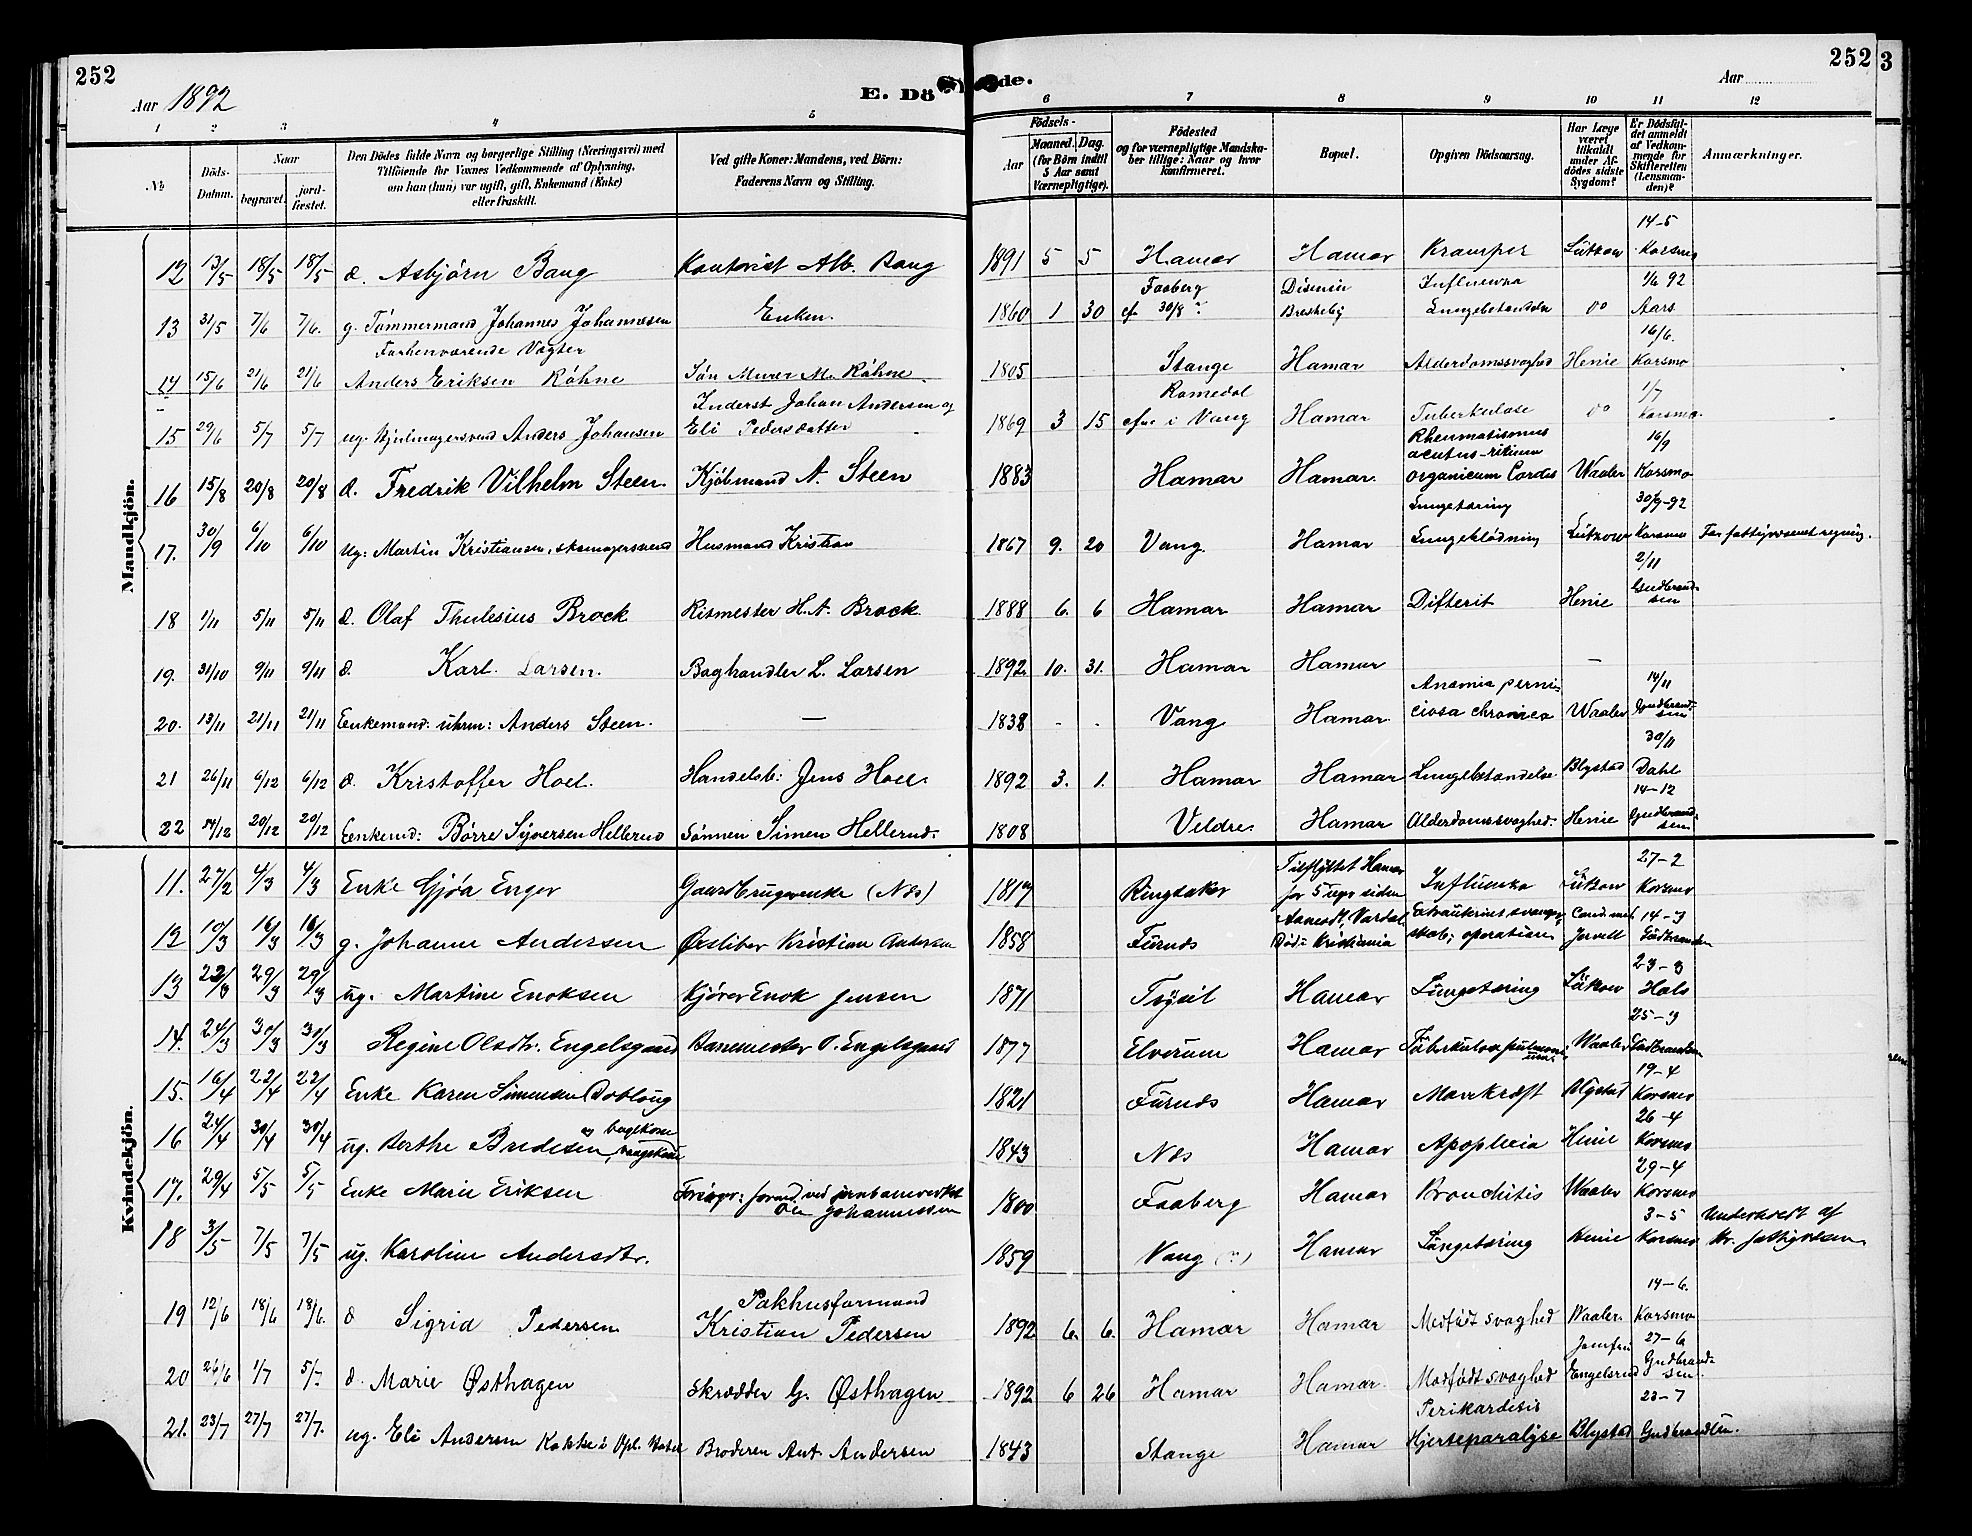 252
Aar 1892
E. Dø de.
Aar
252
3
1 2 3 4 5 6 7 8 9 10 11 12
№
Døds-Datum.
Naar
begravet.
jord-fæstet.
Den Dødes fulde Navn og borgerlige Stilling (Næringsvei) med
Tilføiende for Voxnes Vedkommende af Oplysning,
om han (hun) var ugift, gift, Enkemand (Enke)
eller fraskilt.
Ved gifte Koner: Mandens, ved Børn:
Faderens Navn og Stilling.
Fødsels-
Aar
Maaned. Dag.
(for Børn indtil
5 Aar samt
Værnepligtige).
Fødested
og for værnepligtige Mandska-
ber tillige: Naar og hvor
konfirmeret.
Bopæl.
Opgiven Dødsaarsag.
Har Læge
været
tilkaldt
under Af-
dødes sidste
Sygdom?
Er Dødsfal-
det anmeldt
af Vedkom-
mende for
Skifteretten
(Lensman-
den)?
Anmærkninger.
Mandkjøn.
14-5
12 13/5 18/5 18/5 d. Asbjørn Bang Kontorist Alb. Bang 1891 5 5 Hamar Hamar Kramper Lützow Korsmo
Faaberg Disenin Influenza 1/6 92
13 31/5 7/6 7/6. g. Tømmermand Johannes Johannesen Enken. 1860 1 30 cf. 30/8 ? Lungebetændelse do Aars
Forhenværende Vogter 16/6.
14 15/6 21/6 21/6 Anders Eriksen Røhne Søn Murer M. Røhne 1805 Stange Hamar Alderdomssvaghed Henie Korsmo
Inderst Johan Andersen og Romedal 1/7
15 29/6 5/7 5/7 ug. Hjulmagersvend Anders Johansen Eli Pedersdatter 1869 3 15 i Vang Hamar Tuberkulose do Korsmo.
Rheumatismus 16/9
acutus-vitium
16 15/8 20/8 20/8 d. Fredrik Vilhelm Steen. Kjøbmand A. Steen 1883 Hamar Hamar. organicum Cordis Waaler Korsmo
Lungetæring 30/9-92
17. 30/9 6/10 6/10 ug: Martin Kristiansen, skomagersvend Husmand Kristian 1867 9. 20 Vang. Hamar Lungeblødning Lützow Korsmo For fattigvæsenets regning.
2/11
18 1/11 5/11 5/11 d. Olaf Thulesius Brock. Ritmester H. A. Brock. 1888 6. 6 Hamar Hamar Difterit Henie Gudbrand-
sen
19. 31/10 9/11 9/11 d. Karl Larsen. Boghandler L. Larsen 1892 10. 31. Hamar Hamar –
Anæmia perni- 14/11
20. 13/11 21/11 21/11 Enkemand: uhrm: Anders Steen. – 1838 - - Vang Hamar. ciosa chronica Waaler Gudbrand-
sen
30/11
21 26/11 6/12 6/12 d. Kristoffer Hoel. Handelsb: Jens Hoel. 1892 3. 1. Hamar Hamar Lungebetændelse Blystad Dahl
14-12
22 14/12 20/12 20/12 Enkemd: Børre Syversen Hellerud Sønnen Simen Hellerud. 1808 Veldre. Hamar Alderdomssvaghed. Henie Gudbrand-
sen
Kvindekjøn.
Tilflyttet Hamar 27-2
11. 27/2 4/3 4/3 Enke Gjøa Enger Gaardbrugerenke (Næs) 1817 Ringsaker for 5 uger siden Influenza Lützow Korsmo
Aamodt, Vardal Extrauterint svanger- Cand. med. 14-3
12 10/3 16/3 16/3 g. Johanne Andersen Ølsliber Kristian Andersen 1858 Furnæs Død: Kristiania skab; operation Jervell Gudbrandsen
23-3
13 22/3 29/3 29/3 ug. Martine Enoksen Kjører Enok Jensen 1871 Trysil Hamar Lungetæring Lützow Hals
25-3
14. 24/3 30/3 30/3 Regine Olsdtr. Engelsgaard Banemester O. Engelsgaard 1877 Elverum Hamar Tuberkulose pulmono-
um. Waaler Gudbrandsen
19-4
15. 16/4 22/4 22/4 Enke Karen Simensen Dobloug 1821 Furnæs Hamar Mavekræft Blystad Korsmo
26-4
16 24/4 30/4 30/4 ug. Berthe Bredesen, vaskekone og bagekone 1843 Næs Hamar Apoplexia Henie Korsmo
29-4
17. 29/4 5/5 5/5 Enke Marie Eriksen Forsør: formd. ved jernbaneverket
Ole Johannessen 1800 Faaberg Hamar Bronchitis Waaler Korsmo
3-5
18 3/5 7/5 7/5 ug. Karoline Andersdtr. 1859 Vang (?) Hamar Lungetæring Henie Korsmo Underholdt af
Hr. fattigvæsen
Pakhusformand 14-6.
19 12/6 18/6 18/6. d Sigrid Pedersen Kristian Pedersen 1892 6. 6. Hamar Hamar Medfødt svaghed Waaler. Korsmo
Jomfru 27-6
20 26/6 1/7 5/7 d. Marie Østhagen Skrædder G. Østhagen 1892 6 26 Hamar Hamar. Medfødt svaghed Engelsrud Gudbrand-
sen.
Perikarditis 23-7
21. 23/7 27/7 27/7. ug. Eli Andersen Kokke i Opl. Hotel Broderen Ant. Andersen 1843 Stange Hamar Hjerteparalyse Blystad Gudbrandsen.